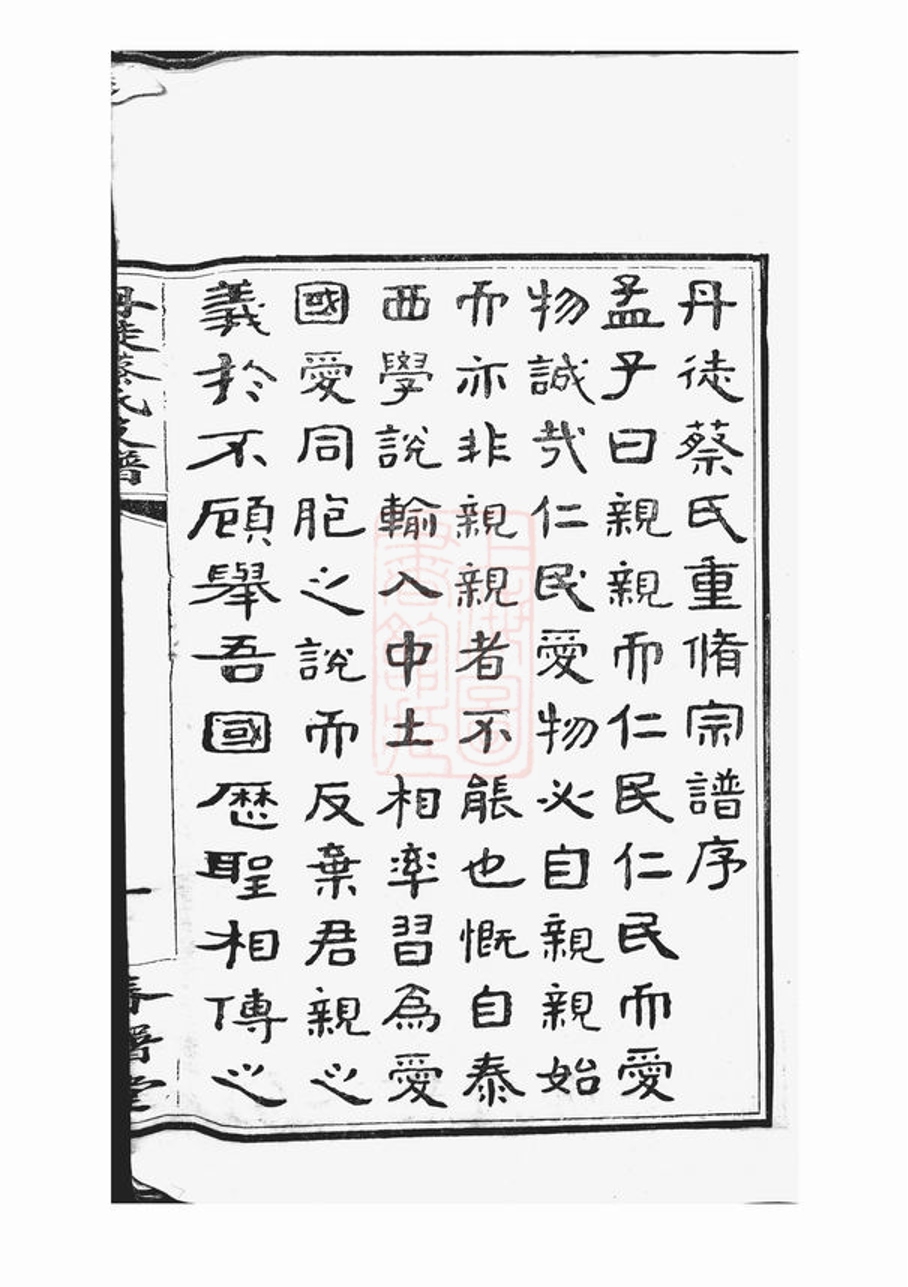 丹徒蔡氏重脩宗譜序
孟子曰親親而仁民仁民而愛
物誠哉仁民愛物必自親親始
而亦非親親者不能也慨自泰
西學說輸入中土相率習為愛
國愛同胞之說而反棄君親之
義於不顧舉吾國歷聖相傳之
丹徒蔡氏支譜
一